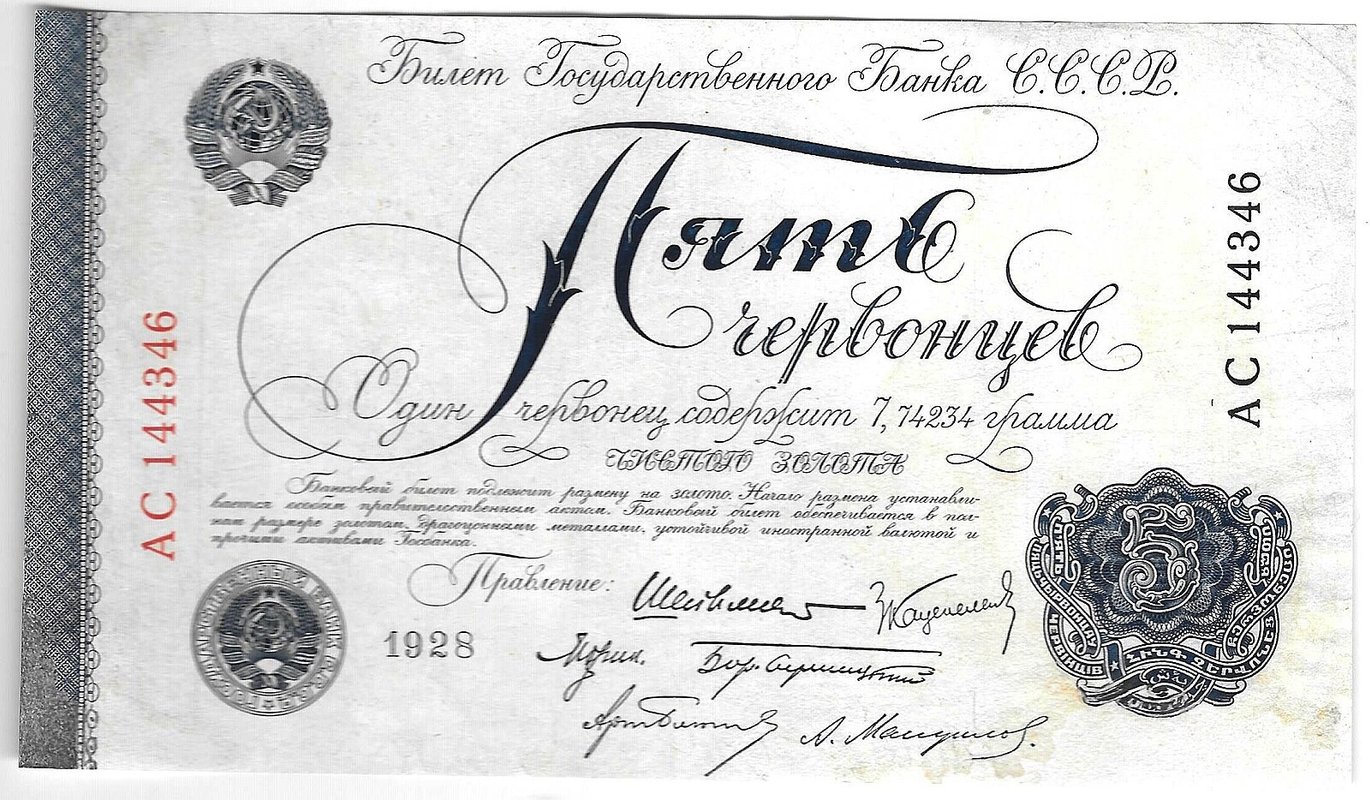 Билет Государственного Банка С.С.С.Р.
Пять
червонцев
Один червонец содержит 7,74234 грамма
чистого золота
Банковый билет подлежит размену на золото. Начало размена устанавли-
вается особым правительственным актом. Банковый билет обеспечивается в пол-
ном размере золотом, драгоценными металлами, устойчивой иностранной валютой и
прочими активами Госбанка.
Правление:
1928
АС 144346
АС 144346
5
ПЯТЬ
ЧЕРВІНЦІВ
ՀԻՆԳ ՉԵՐՎՈՆԵՑ